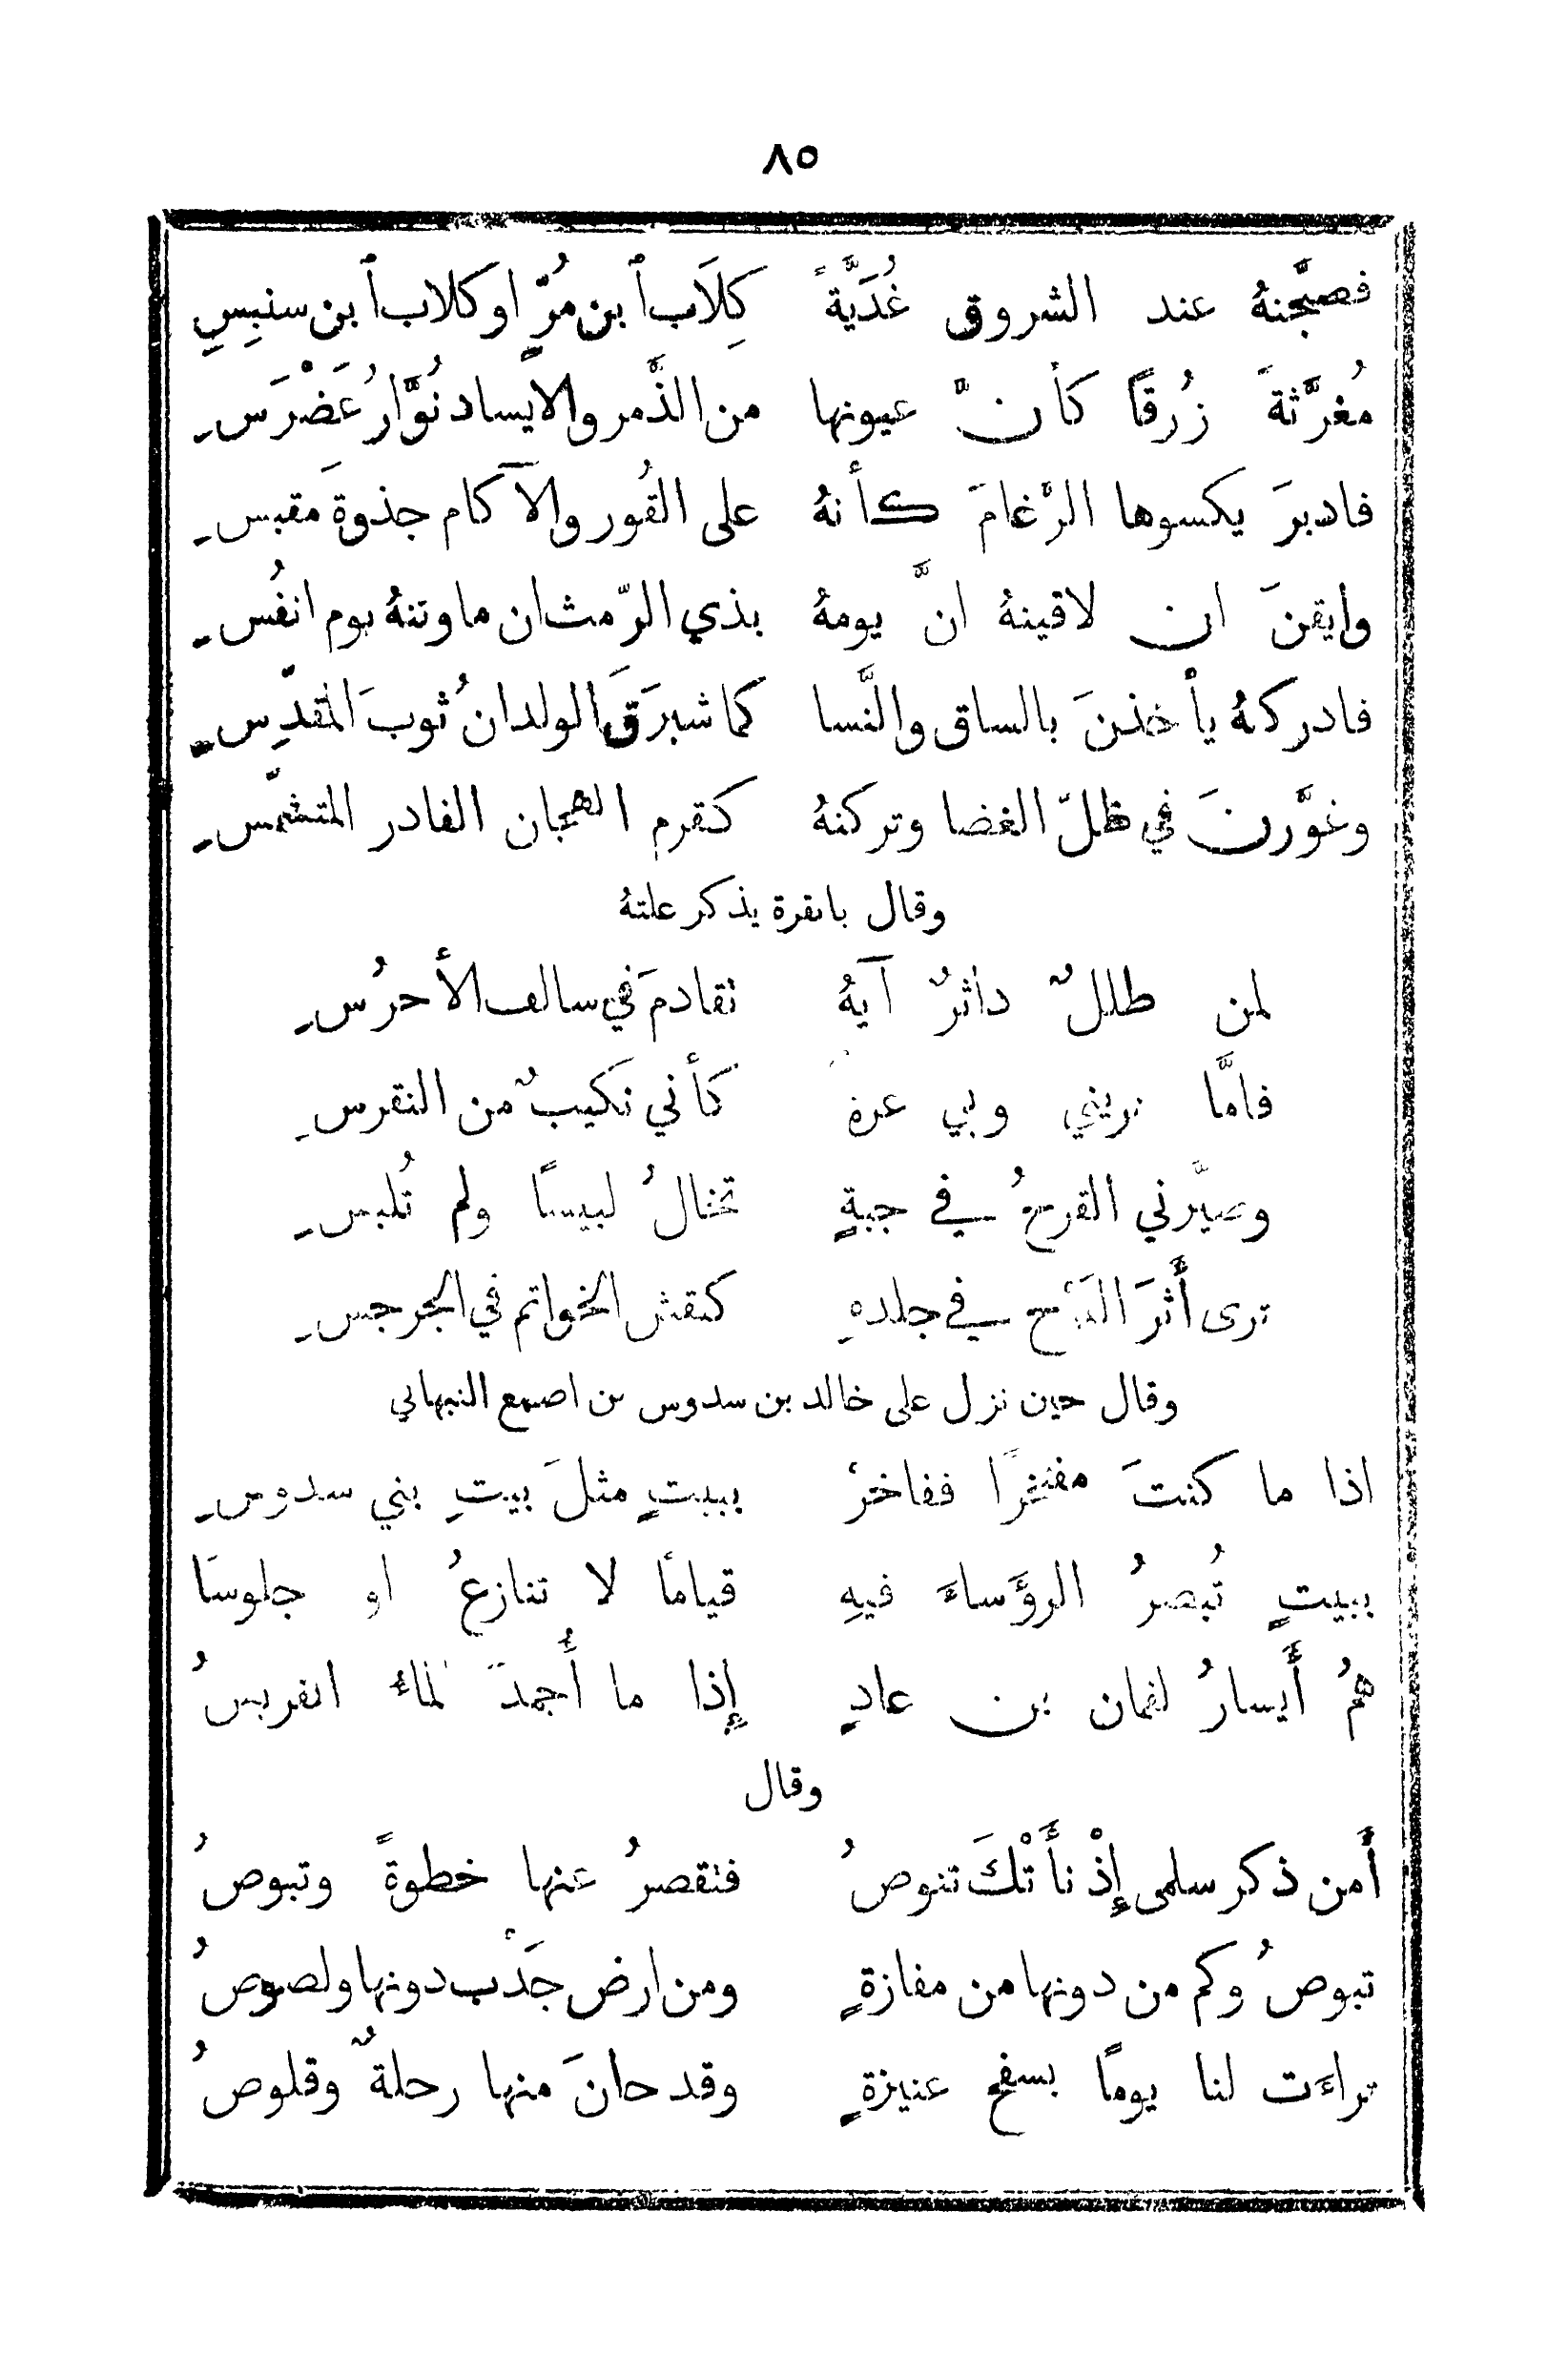 ٨٥
فصبَّحنهُ عند الشروق غُدَيَّةً كِلَابُ ٱبن مُرٍّ او كلاب ٱبن سنبِسِ
مُغرَّثةً زُرقًا كأنَّ عيونها من الذَّمر والايساد نُوَّارُ عَضْرَسِ
فادبرَ يكسوها الرَّغامَ كأنهُ على القُور والآكام جذوةَ مقبسِ
وايقنَ ان لاقينهُ انَّ يومهُ بذي الرّمث ان ماوتنهُ يوم انفُسِ
فادركنهُ يأخذنَ بالساق والنَّسا كما شبرَقَ الولدانُ ثوبَ المقدّسِ
وغوَّرنَ في ظلّ الغضا وتركنهُ كقرم الهجان الفادر المتشمّسِ
وقال بانقرة يذكر علتهُ
لمن طللٌ داثرٌ آيهُ تقادمَ في سالف الأحرُسِ
فامَّا تريني وبي عرة كأني نكيبٌ من النقرسِ
وصيَّرني القرحُ في جبةٍ تخالُ لبيسًا ولم تُلبسِ
ترى أَثرَ القَرْح في جلدهِ كنقش الخواتم في الجرجسِ
وقال حين نزل على خالد بن سدوس بن اصمع النبهاني
اذا ما كنتَ مفتخرًا ففاخرْ ببيتٍ مثلَ بيتِ بني سدوسِ
ببيتٍ تُبصرُ الرؤَساءَ فيهِ قيامًا لا تنازعُ او جلوسَا
همُ أَيسارُ لقمان بن عادٍ إِذا ما أُجمدَ الماءُ القريسُ
وقال
أَمن ذكر سلمى إِذْ نأَتْكَ تنوصُ فتقصرُ عنها خطوةً وتبوصُ
تبوصُ وكم من دونها من مفازةٍ ومن ارض جَدْب دونها ولصوصُ
تراءَت لنا يومًا بسفح عنيزةٍ وقد حانَ منها رحلةٌ وقلوصُ